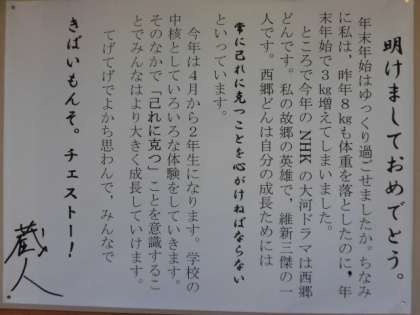 明けましておめでとう。
年末年始はゆっくり過ごせましたか。ちなみ
に私は、昨年８㎏も体重を落としたのに、年
末年始で３㎏増えてしまいました。
ところで今年の NHK の大河ドラマは西郷
どんです。私の故郷の英雄で、維新三傑の一
人です。西郷どんは自分の成長ためには
常に己れに克つことを心がけねばならない
といっています。
今年は４月から２年生になります。学校の
中核としていろいろな体験をしていきます。
そのなかで「己れに克つ」ことを意識するこ
とでみんなはより大きく成長していけます。
てげてげでよかち思わんで、みんなで
きばいもんそ。チェストー！
蔵人